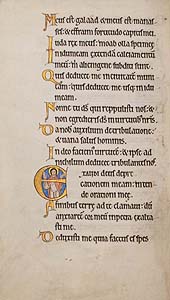 Meus est galaad & meus est manas
ses: & effraim fortitudo capitis mei.
Iuda rex meus: moab olla spei mee.
In idumeam extendam calciamentum
meum: m alienigene subditi sunt.
Quis deducet me in civitatem munitam:
quis deducet me usq; in idu
meam.
Nonne tu ds qui reppulisti nos: &
non egredieris ds in virtutib; nris.
Da nob auxilium de tribulatione:
& vana salus hominis.
In deo faciemus virtutem: & ipse ad
nichilum deducet tribulantes nos.
Exaudi deus depre
cationem meam: inten
de orationi mee.
A finibus terre ad te clamavi: dum
anxiaretur cor meum in petra exalta
sti me.
Deduxisti me quia factus es spes